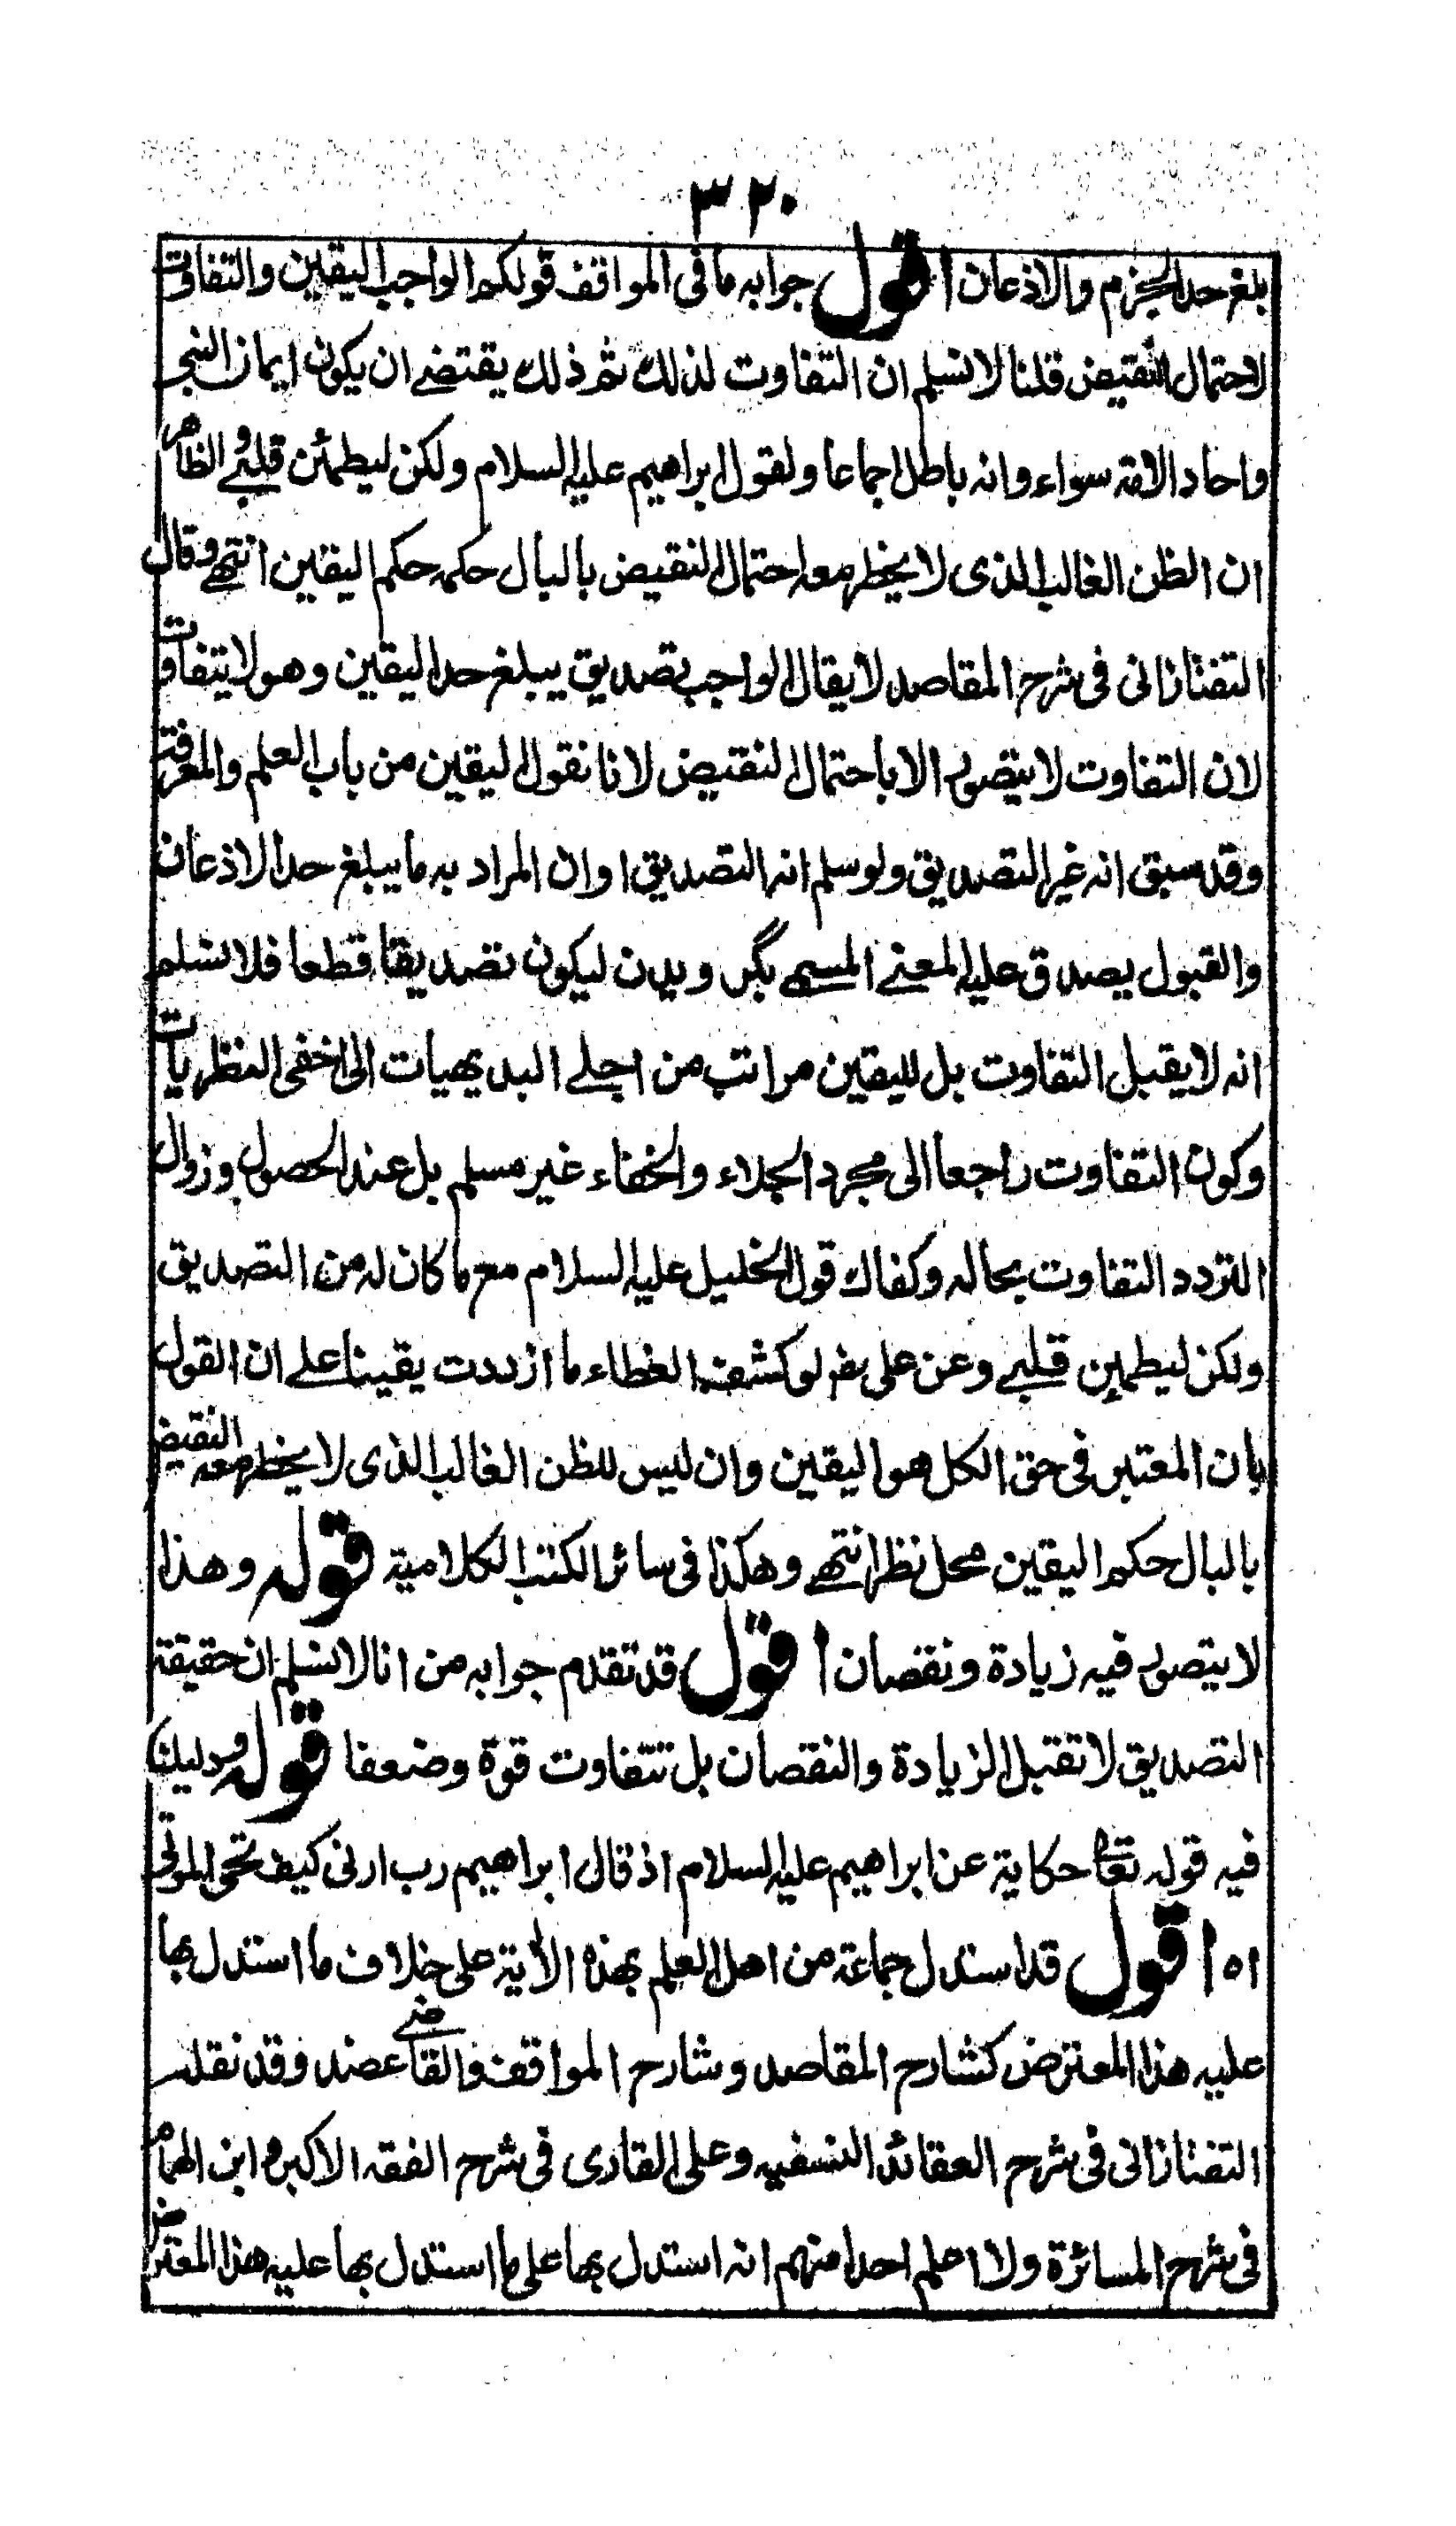 ٣٢٠
بلغ حد الجزم والاذعان اقول جوابه ما فى المواقف قولكم الواجب اليقين والتفاوت
لاحتمال النقيض قلنا لا نسلم ان التفاوت لذلك ثم ذلك يقتضے ان يكون ايمان النبى
واحاد الامة سواء وانه باطل اجماعا ولقول ابراهيم عليه السلام ولكن ليطمئن قلبے والظاهر
ان الظن الغالب الذى لا يخطر معه احتمال النقيض بالبال حكمه حكم اليقين انتهے وقال
التفتازانى فى شرح المقاصد لا يقال الواجب تصديق يبلغ حد اليقين وهو لا يتفاوت
لان التفاوت لا يتصور الا باحتمال النقيض لانا نقول اليقين من باب العلم والمعرفة
وقد سبق انه غير التصديق ولو سلم انه التصديق اوان المراد به ما يبلغ حد الاذعان
والقبول يصدق عليه المعنے المسمے بگرويدن ليكون تصديقا قطعا فلا نسلم
انه لا يقبل التفاوت بل لليقين مراتب من اجلے البديهيات الى اخفى النظريات
وكون التفاوت راجعا الى مجرد الجلاء والخفاء غير مسلم بل عند الحصول وزوال
التردد التفاوت بحاله وكفاك قول الخليل عليه السلام مع ما كان له من التصديق
ولكن ليطمئن قلبے وعن على رضه لو كشف الغطاء ما ازددت يقينا علے ان القول
بان المعتبر فى حق الكل هو اليقين وان ليس للظن الغالب الذى لا يخطر معه النقيض
بالبال حكم اليقين محل نظر انتهے وهكذا فى سائر الكتب الكلامية قوله وهذا
لا يتصور فيه زيادة ونقصان اقول قد تقدم جوابه من انا لا نسلم ان حقيقة
التصديق لا تقبل الزيادة والنقصان بل تتفاوت قوة وضعفا قوله ودليلنا
فيه قوله تعالى حكاية عن ابراهيم عليه السلام اذ قال ابراهيم رب ارنى كيف تحى الموتى
اه اقول قد استدل جماعة من اهل العلم بهذه الآية على خلاف ما استدل بها
عليه هذا المعترض كشارح المقاصد وشارح المواقف والقاضے عضد وقد نقله
التفتازانى فى شرح العقائد النسفيه وعلى القارى فى شرح الفقه الاكبر وابن الهمام
فى شرح المسائرة ولا اعلم احدا منهم انه استدل بها على ما استدل بها عليه هذا المعترض